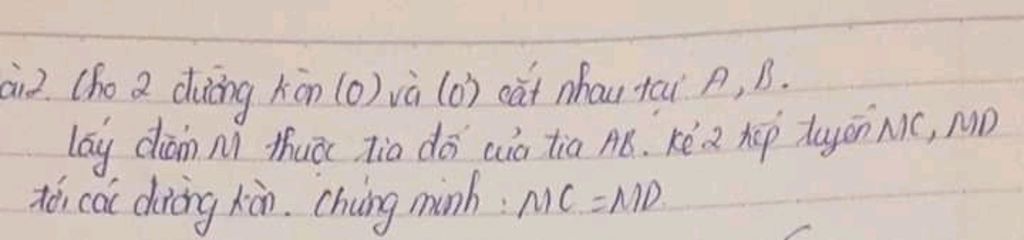 ài2. Cho 2 đường tròn (O) và (O') cắt nhau tại A, B.
lấy điểm M thuộc tia đối của tia AB. Kẻ 2 tiếp tuyến MC, MD
tới các đường tròn. Chứng minh : MC = MD.